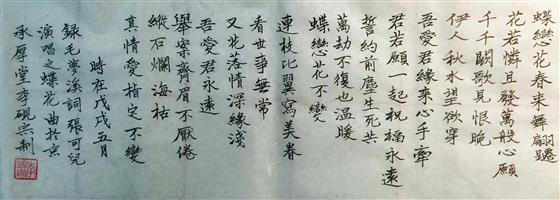 蝶戀花春來舞翩躚
花若憐且發萬般心願
千千闋歌見恨晚
伊人秋水望欲穿
吾愛君緣來心手牽
君若願一起祝福永遠
誓約前塵生死共
萬劫不復也溫暖
蝶戀花不變
連枝比翼寫美眷
看世事無常
又花落情深緣淺
吾愛君永遠
舉案齊眉不厭倦
縱石爛海枯
真情愛指定不變
時在戊戌五月
錄毛夢溪詞張可兒
演唱之蝶花曲於京
承厚堂李硯宗制